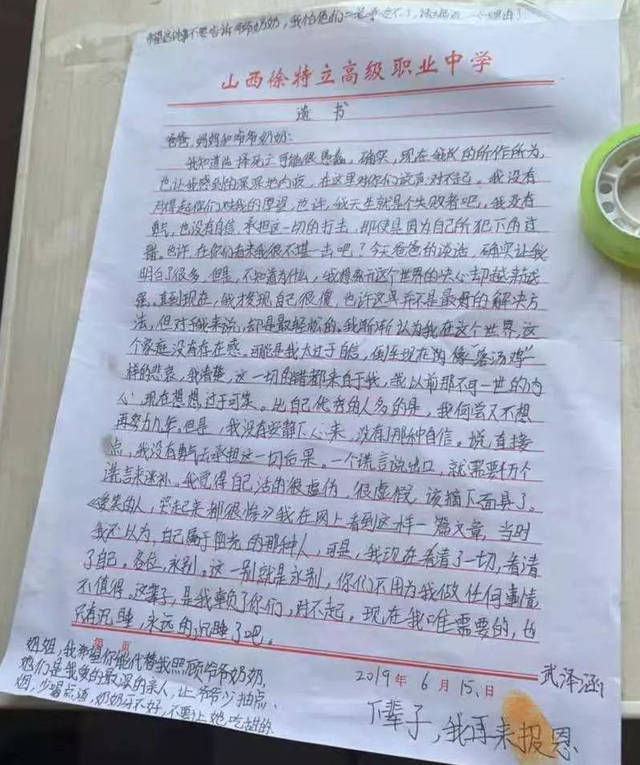 希望这件事不要告诉爷爷奶奶，我怕他们
山西徐特立高级职业中学
遗书
爸爸，妈妈和爷爷奶奶：
我知道选择死亡可能很愚蠢，确实，现在我的所作所为，
也让我感到深深地内疚，在这里对你们说声对不起，我没有
你们对我的愿望，也许，我天生就是个失败者吧，我没有
勇气，也没有自信，承担这一切的打击，即使是因为自己所犯下的过
错。也许，在你们看来我很不堪一击吧？今天爸爸的谈话，确实让我
明白了很多，但是，不知道为什么，我想离开这个世界的决心却越来越
强。直到现在，我才发现自己很傻，也许这并不是最好的解决方
法，但对于我来说，却是最轻松的。我渐渐认为我在这个世界，这
个家庭没有存在感。可能是我太过于自信，倒至现在的像"落汤鸡"一
样的悲哀，我清楚，这一切的错都来自于我，我以前那不可一世的内
心，现在想想，过于可笑。比自己优秀的人多的是，我何尝又不想
再努力几年，但是，我没有安静下心来，没有了那种自信。说直接
点，我没有勇气去承担这一切后果。一个谎言说出口，就需要万个
谎言来弥补。我觉得自己活的很虚伪，很虚假，该摘下面具了。
《爱笑的人，哭起来都很惨》我在网上看到这样一篇文章，当时
我还以为，自己属于阳光的那种人，可是，我现在看清了一切，看清
了自己。各位，永别。这一别就是永别，你们不用为我做任何事情
不值得，这辈子，是我亏欠了你们，对不起。现在我唯一需要的，也
只有沉睡，永远的沉睡了吧。
姐姐，我希望你能代替我照顾爷爷奶奶，
他们是我爱的最深的亲人，让爷爷少抽点
烟，少喝点酒，奶奶牙不好，不要让她吃甜的
2019年6月15日
武泽涵
下辈子，我再来报恩